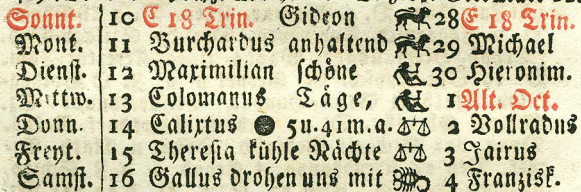 Sonnt. 10 C 18 Trin. Gideon 28 E 18 Trin.
Mont. 11 Burchardus anhaltend 29 Michael
Dienst. 12 Maximilian schöne 30 Hieronim.
Mittw. 13 Colomanus Täge, 1 Alt. Oct.
Donn. 14 Calixtus 5 u. 41 m. a. 2 Vollradus
Freyt. 15 Theresia kühle Nächte 3 Jairus
Samst. 16 Gallus drohen uns mit 4 Franzisk.